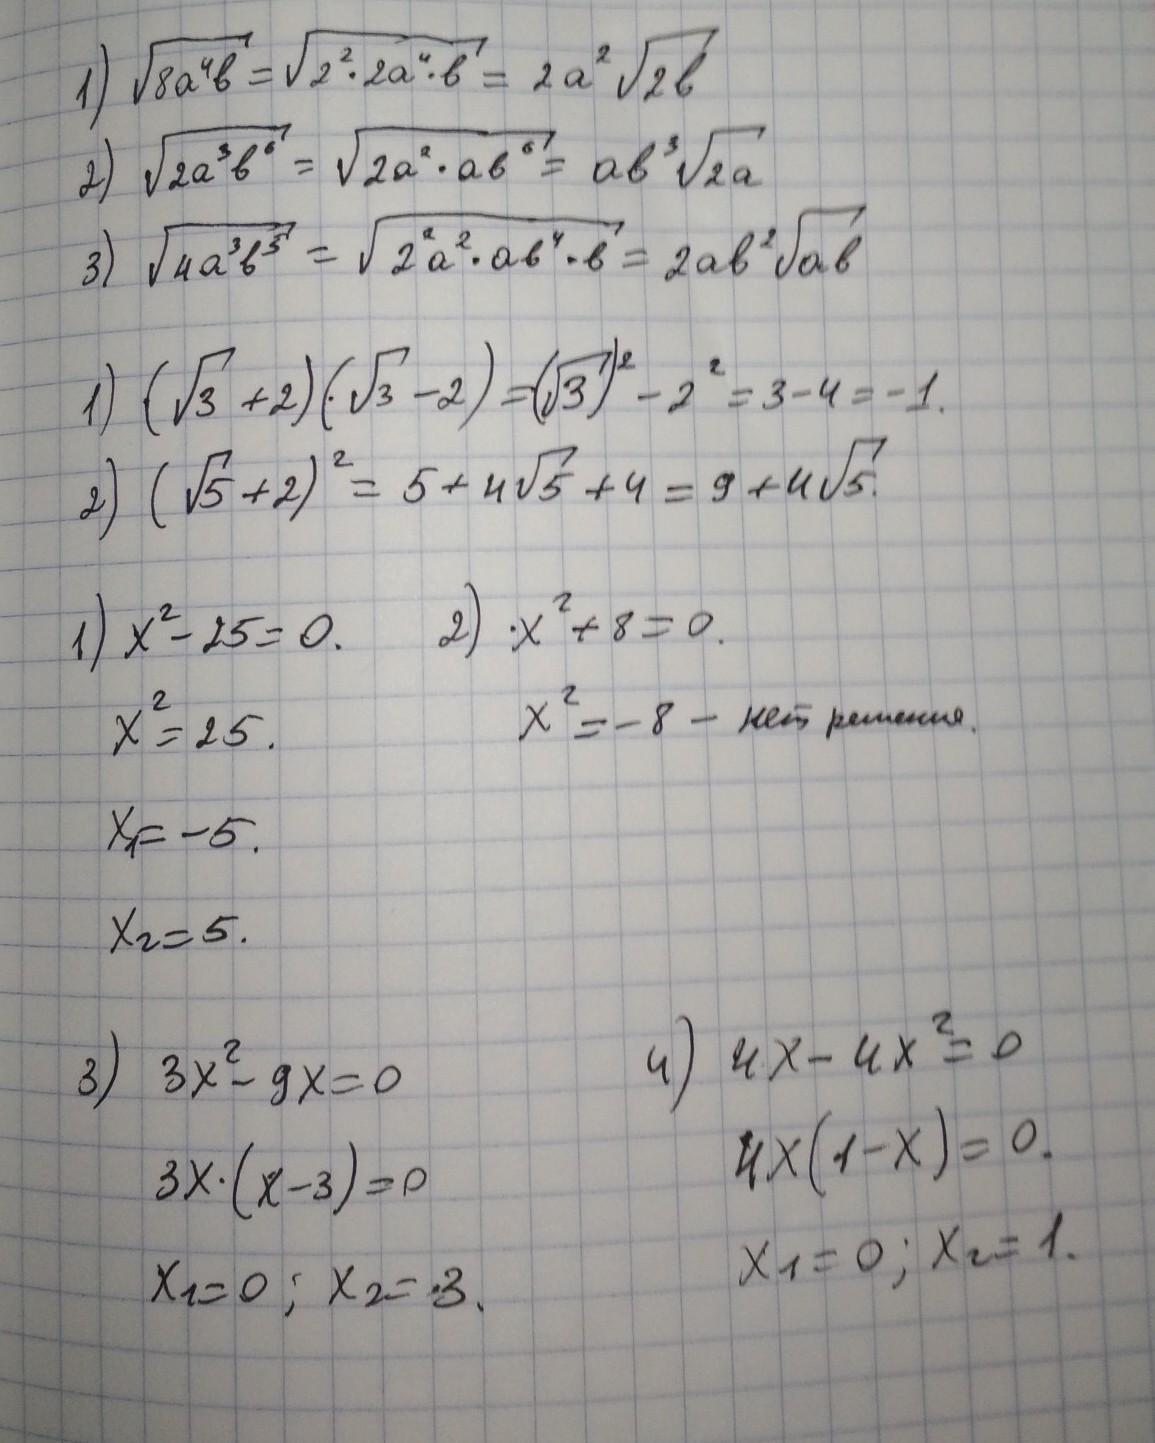 1) √(8a⁴b) = √(2²·2a⁴·b) = 2a²√(2b)
2) √(2a³b⁶) = √(2a²·ab⁶) = ab³√(2a)
3) √(4a³b⁵) = √(2²a²·ab⁴·b) = 2ab²√(ab)
1) (√3 + 2)·(√3 - 2) = (√3)² - 2² = 3 - 4 = -1.
2) (√5 + 2)² = 5 + 4√5 + 4 = 9 + 4√5.
1) x² - 25 = 0.
x² = 25.
x₁ = -5.
x₂ = 5.
2) ·x² + 8 = 0.
x² = -8 - нет решения.
3) 3x² - 9x = 0
3x·(x - 3) = 0
x₁ = 0; x₂ = 3.
4) 4x - 4x² = 0
4x(1 - x) = 0.
x₁ = 0; x₂ = 1.